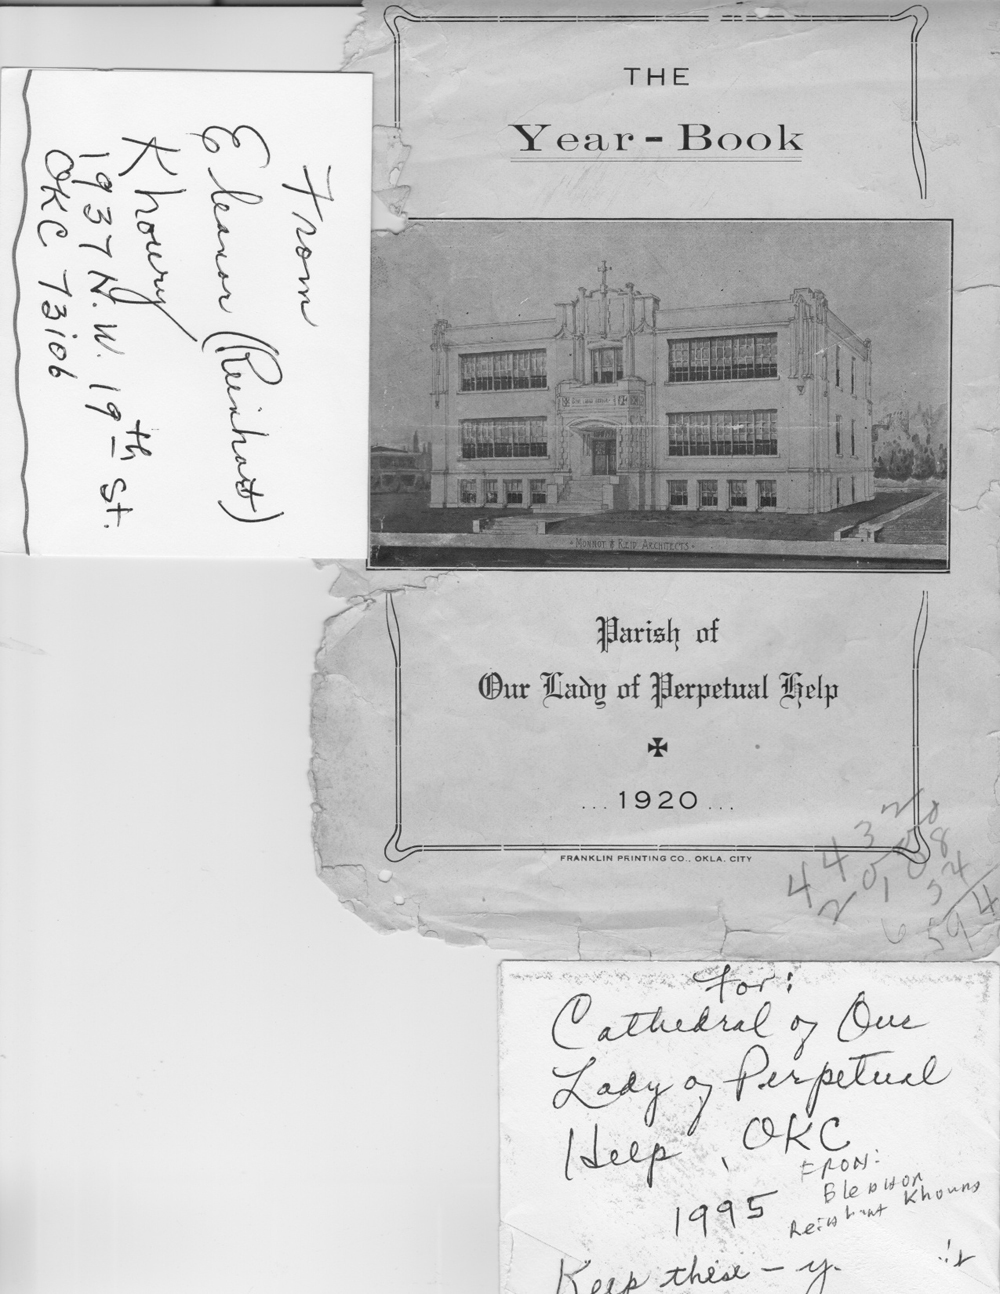 From
Eleanor (Reinhart)
Khoury
1937 N.W. 19th St.
OKC 73106
THE
Year-Book
MONNOT & REID ARCHITECTS
Parish of
Our Lady of Perpetual Help
... 1920 ...
FRANKLIN PRINTING CO., OKLA. CITY
For:
Cathedral of Our
Lady of Perpetual
Help, OKC
FROM:
Eleanor
Reinhart Khoury
1995
Keep these - y.